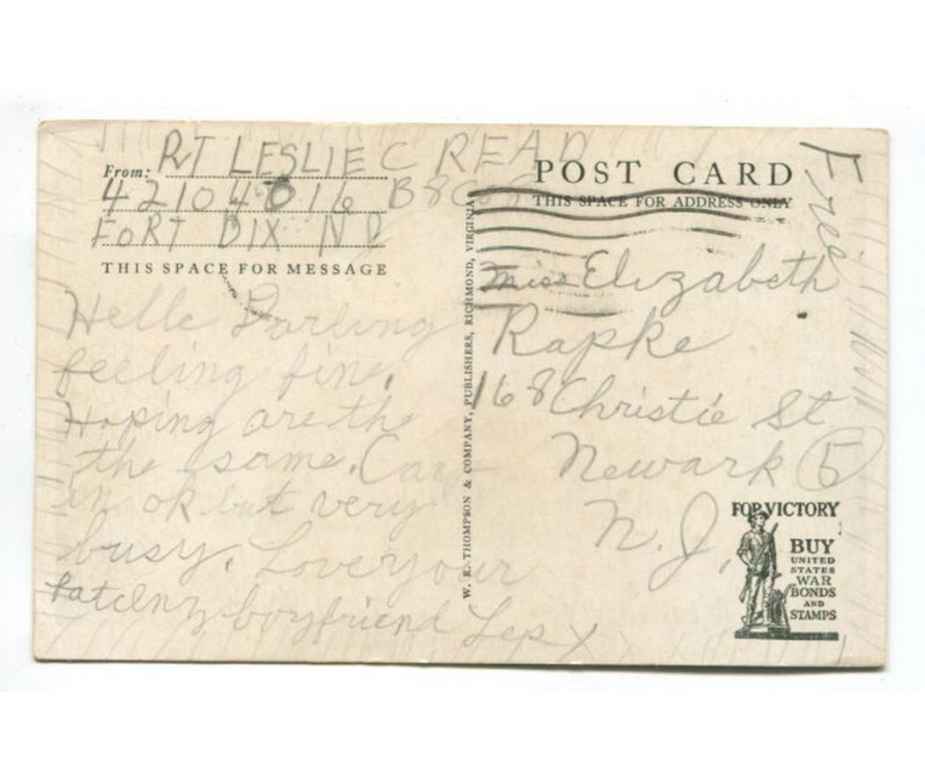 From: RT LESLIE C READ
42104816
FORT DIX NJ
THIS SPACE FOR MESSAGE
Hello Darling
feeling fine.
Hoping are the
the same.
ok but very
busy. Love your
boyfriend Les X
W. R. THOMPSON & COMPANY, PUBLISHERS, RICHMOND, VIRGINIA
POST CARD
THIS SPACE FOR ADDRESS ONLY
Free
Miss Elizabeth
Rapke
168 Christie St
Newark 5
N. J.
FOR VICTORY
BUY
UNITED
STATES
WAR
BONDS
AND
STAMPS